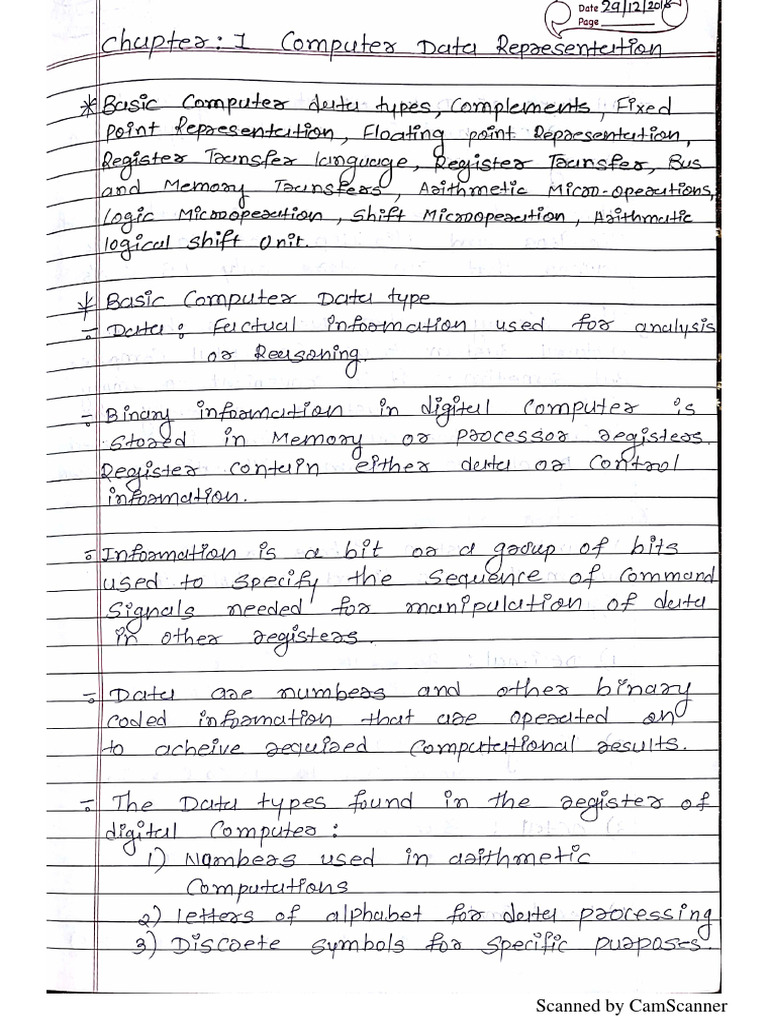 Date 29/12/2018
Page
Chapter: 1 Computer Data Representation
* Basic Computer data types, Complements, Fixed
Point Representation, Floating point Representation,
Register Transfer language, Register Transfer, Bus
and Memory Transfers, Arithmetic Micro-operations,
Logic Microoperation, Shift Microoperation, Arithmatic
logical shift Unit.
* Basic Computer Data type
- Data: Factual information used for analysis
or Reasoning.
- Binary information in digital computer is
stored in Memory or processor registers.
Register contain either data or control
information.
- Information is a bit or a group of bits
used to specify the sequence of command
signals needed for manipulation of data
in other registers.
- Data are numbers and other binary
coded information that are operated on
to acheive required computational results.
- The Data types found in the register of
digital Computer:
1) Numbers used in arithmetic
Computations
2) letters of alphabet for data processing
3) Discrete symbols for specific purposes.
Scanned by CamScanner